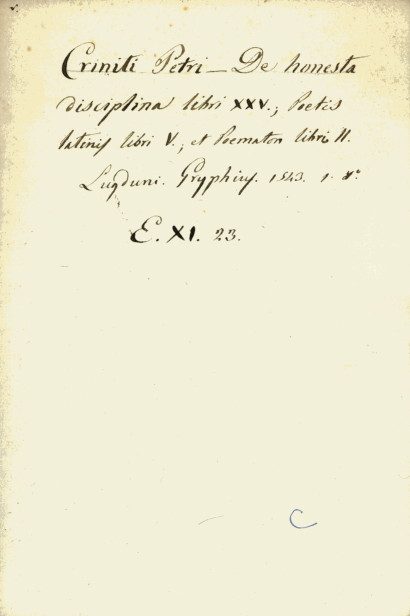 Criniti Petri — De honesta
disciplina libri XXV.; Poetis
latinis libri V.; et Poematon libri II.
Lugduni. Gryphius. 1543. 1. 8°
E. XI. 23.
C